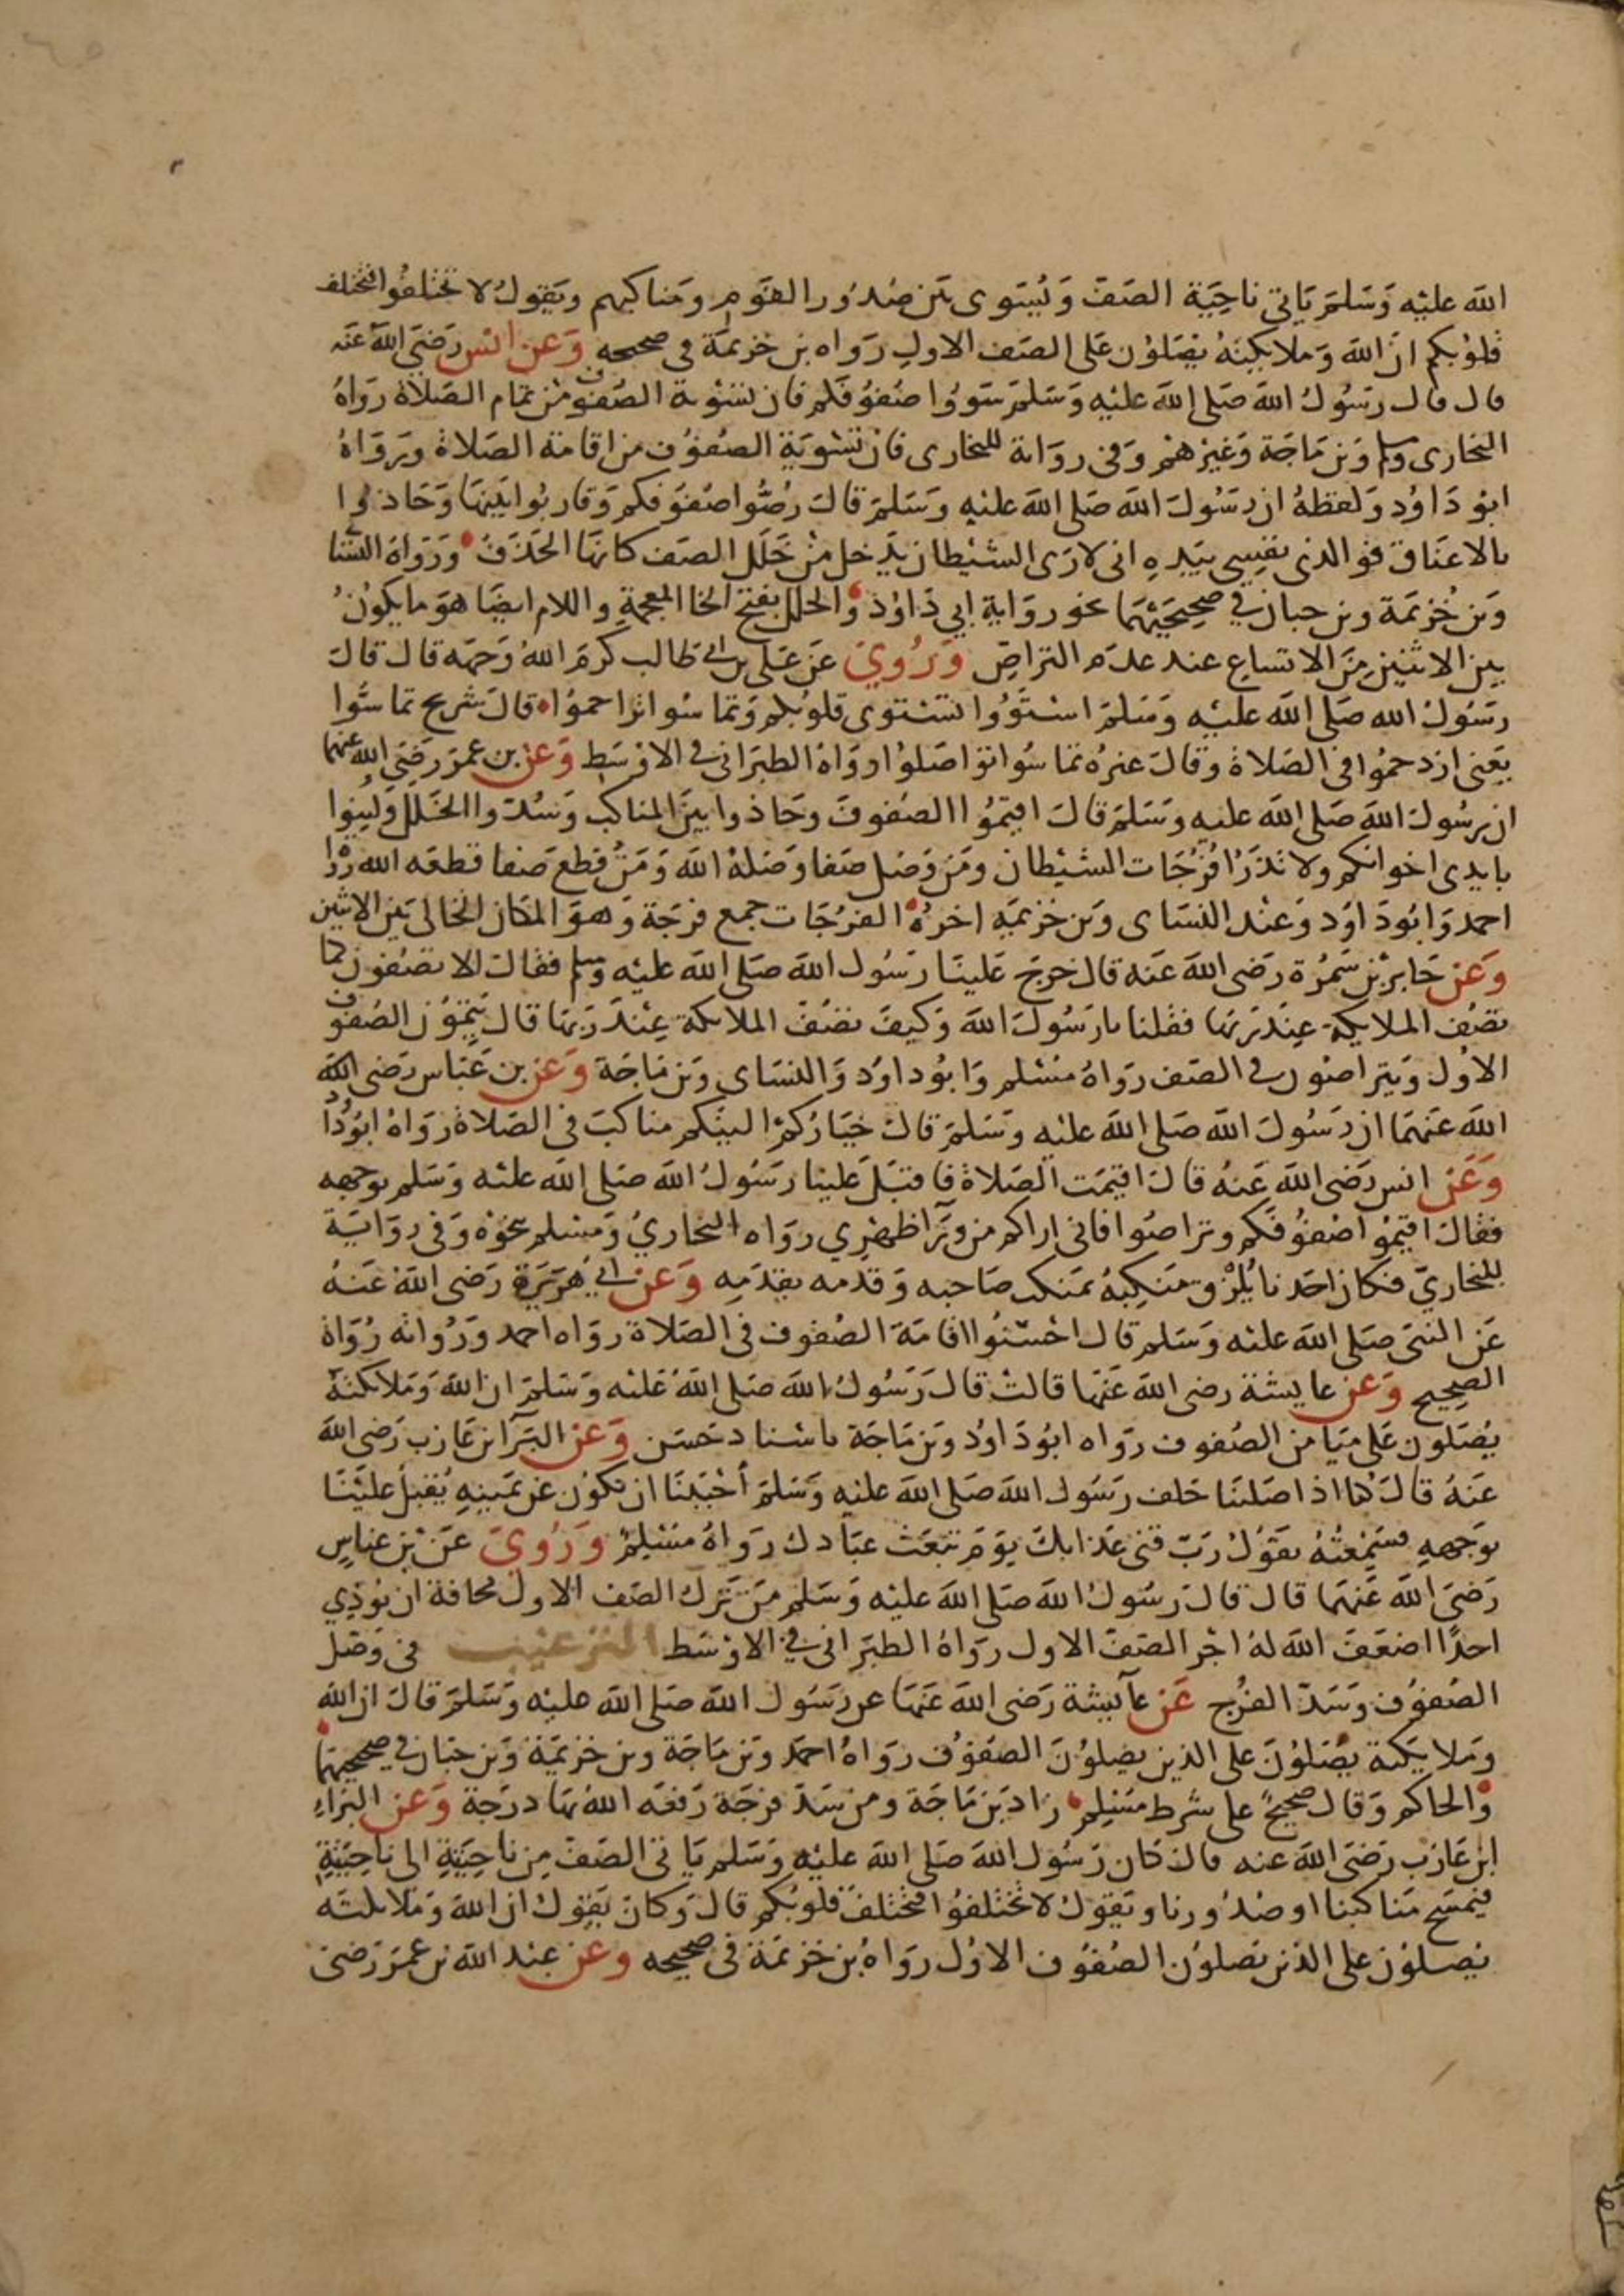 الله عليْه وَسَلمَ يَاتي ناحِيَة الصَفّ وَيُسَوى بَين صُدُور القَوم ومَناكبهم ويَقولُ لا تختَلفُوا فتختلف
قلوبكم انَّ اللهَ وَملايكتهُ يُصَلوُن عَلى الصَف الاولِ رَواه بن خزيمَة في صحيحه وَعن انس رَضيَ اللهُ عَنه
قال قال رَسُولُ اللهَ صَلى اللهَ عليْهِ وَسَلمَ سَووُا صُفوُفكم فان تسْوية الصُفوف من تمام الصَلاة رَواهُ
البخارى ومسلم وَبن مَاجَة وَغيْرهمْ وَفي روَاية للبخارى فان تسْويَة الصُفوُف من اقامة الصَلاة وَرَوَاهُ
ابو دَاوُد وَلفظهُ ان رسَوُلَ اللهَ صَلى اللهَ عليْهِ وَسَلمَ قالَ رُصُّوا صُفوُفكم وَقاربُوا بَينَها وَحَاذوا
بالاعنَاق فو الذى نفسِى بيَدِهِ انى لارَى الشيْطان يَدخل منْ خَلَل الصَف كانهَا الحَذَف وَرَوَاهُ النسَا
وَبن خُزيمَة وبن حبان في صحِيحَيْهمَا نحو روَاية ابي دَاوُد والخلل بفتح الخا المعجمةِ واللام ايضَا هوَ ما يكوُنُ
بين الاثنين مِنَ الاتساعِ عند عدَم التراصِ وَرُوِيَ عَن عَلى بن ابي طالب كرمَ اللهُ وَجهه قال قالَ
رسَوُلُ الله صَلى اللهَ عليْهِ وَسَلمَ اسْتوُوا تسْتوى قلوبُكم وَتماسُوا تراحموُا قالَ سْريج تماسُّوا
يَعنى ازدحمُوا في الصَلاة وقالَ غيرُه تماسُوا تواصَلوُا روَاهُ الطبرَانى في الاوْسَط وَعن بن عمَرَ رَضيَ الله عنهما
ان رسُولَ اللهَ صَلى اللهَ عليهِ وسَلمَ قالَ اقيمُوا الصُفوفَ وحَاذوا بينَ المناكب وَسُدوا الخَلل وَلينوا
بايدى اخوانكم ولا تذرُا فرُجَات الشيْطان ومَن وَصَل صَفا وَصَلهُ اللهَ وَمَنْ قطعَ صَفا قطعَه الله رَوَا
احمد وَابُو دَاوَد وَعنْد النسَاى وَبن خزيمَةِ اخرُهُ الفرُجَات جمع فرجَة وَهوَ المَكان الخالى بَين الاثنين
وَعَن جَابر بْن سَمُرة رَضى اللهَ عَنه قال خرجَ عَلينَا رَسُول اللهَ صَلى اللهَ عليْه وسلم فقالَ الا تصُفون كما
تصُف الملايكة عِندَ ربها فقلنا يا رَسُولَ اللهَ وَكيفَ تصُفُ الملايكة عِنْدَ رَبها قال يُتِمُوُنَ الصُفوف
الاوُل وَيتراصُون في الصَف رَواهُ مسْلم وَابوُ داوُد وَالنسَاى وَبن مَاجَة وَعن بن عَبَاس رَضى الله
اللهَ عَنهمَا ان رَسُولَ اللهَ صَلى اللهَ عليْه وَسَلمَ قالَ خيَارُكمُ الينَكم مناكبَ في الصَلاة روَاهُ ابوُ دَاوُد
وَعَن انس رَضى اللهَ عَنهُ قالَ اقيمَت الصَلاة فاقبَلَ عَلينا رَسُولُ اللهَ صَلى اللهَ عليْه وَسَلم بوَجهه
فقالَ اقيمُوا صُفوُفَكم وتراصُوا فانى اراكم من ورَا ظهْرِي روَاه البُخاريُ وَمسْلم نحوْهُ وَفى روَايَة
للبُخاريّ فكان احَدنا يُلزْق مَنكِبهُ بمَنكب صَاحبه وَقدَمه بقدَمِهِ وَعَن ابي هُرَيرَة رَضى اللهَ عَنهُ
عَن النبيَ صَلى اللهَ عليْه وَسَلم قال احْسَنُوا اقامَة الصُفوف في الصَلاة روَاه احمد وَرُواته رُوَاة
الصحِيح وَعن عايشة رضى اللهَ عَنهَا قالتْ قالَ رَسُولُ اللهَ صَلى اللهَ عَليْه وَسَلمَ ان اللهَ وَمَلايكتهُ
يُصَلون عَلى مَيَا من الصُفوف رَواه ابوُدَاوُد وَبن مَاجَة باسْناد حَسَن وَعَن البَرَآ بن عَازب رَضى اللهَ
عَنهُ قالَ كنا اذا صَلينَا خلف رَسُول اللهَ صَلى اللهَ عليْهِ وَسَلمَ أحْببْنَا ان نكوُن عَن يَمينهِ يُقبلُ عليْنَا
بوَجههِ فسَمِعْتهُ يَقوُلُ رَبّ قنى عَذابكَ يوَمَ تبْعَث عبَادك روَاهُ مسْلِمْ وَرُوِىَ عَن بْن عبَاسٍ
رَضيَ اللهَ عَنهمَا قال قالَ رسُولُ اللهَ صَلى اللهَ عليْه وَسَلم مَن تَرَك الصَف الاول مخافة ان يُوذِي
احدًا اضعَفَ اللهَ لهُ اجْر الصَف الاول رَوَاهُ الطبَرانى في الاوْسَط الترغيب في وَصْل
الصُفوُف وَسَدّ الفرُج عَن عآيشة رَضى اللهَ عَنهَا عن رَسُول اللهَ صَلى اللهَ عليْه وَسَلمَ قالَ ان الله
وَملايكة يُصَلوُنَ على الذين يصِلوُنَ الصُفوُف رَوَاهُ احمَد وَبن مَاجَة وبن خزيمَة وَبن حبَان في صحيحيهما
والحاكم وَقال صحِيحٌ على شرط مسْلِم زادَ بن مَاجَة ومن سَدَ فرجَة رَفعَه اللهُ بهَا درَجَة وَعَن البَرَاءِ
ابن عَازب رَضَى اللهَ عنه قالَ كان رَسُول اللهَ صَلى اللهَ عليْهِ وَسَلم يَاتى الصَفّ مِن ناحِيَةِ الى ناحِيَةِ
فيَمسَح مَناكبنا او صُدُورنا وَيَقوُلُ لا تختلفوُا فتختلفَ قلوبُكم قالَ وَكانَ يَقوُلُ ان اللهَ وَمَلايكته
يُصلوُن على الذين يَصلوُن الصُفوُف الاوُل روَاهُ بن خزيمَة في صحِيحه وعَن عبْد اللهَ بن عمَرَ رَضىَ